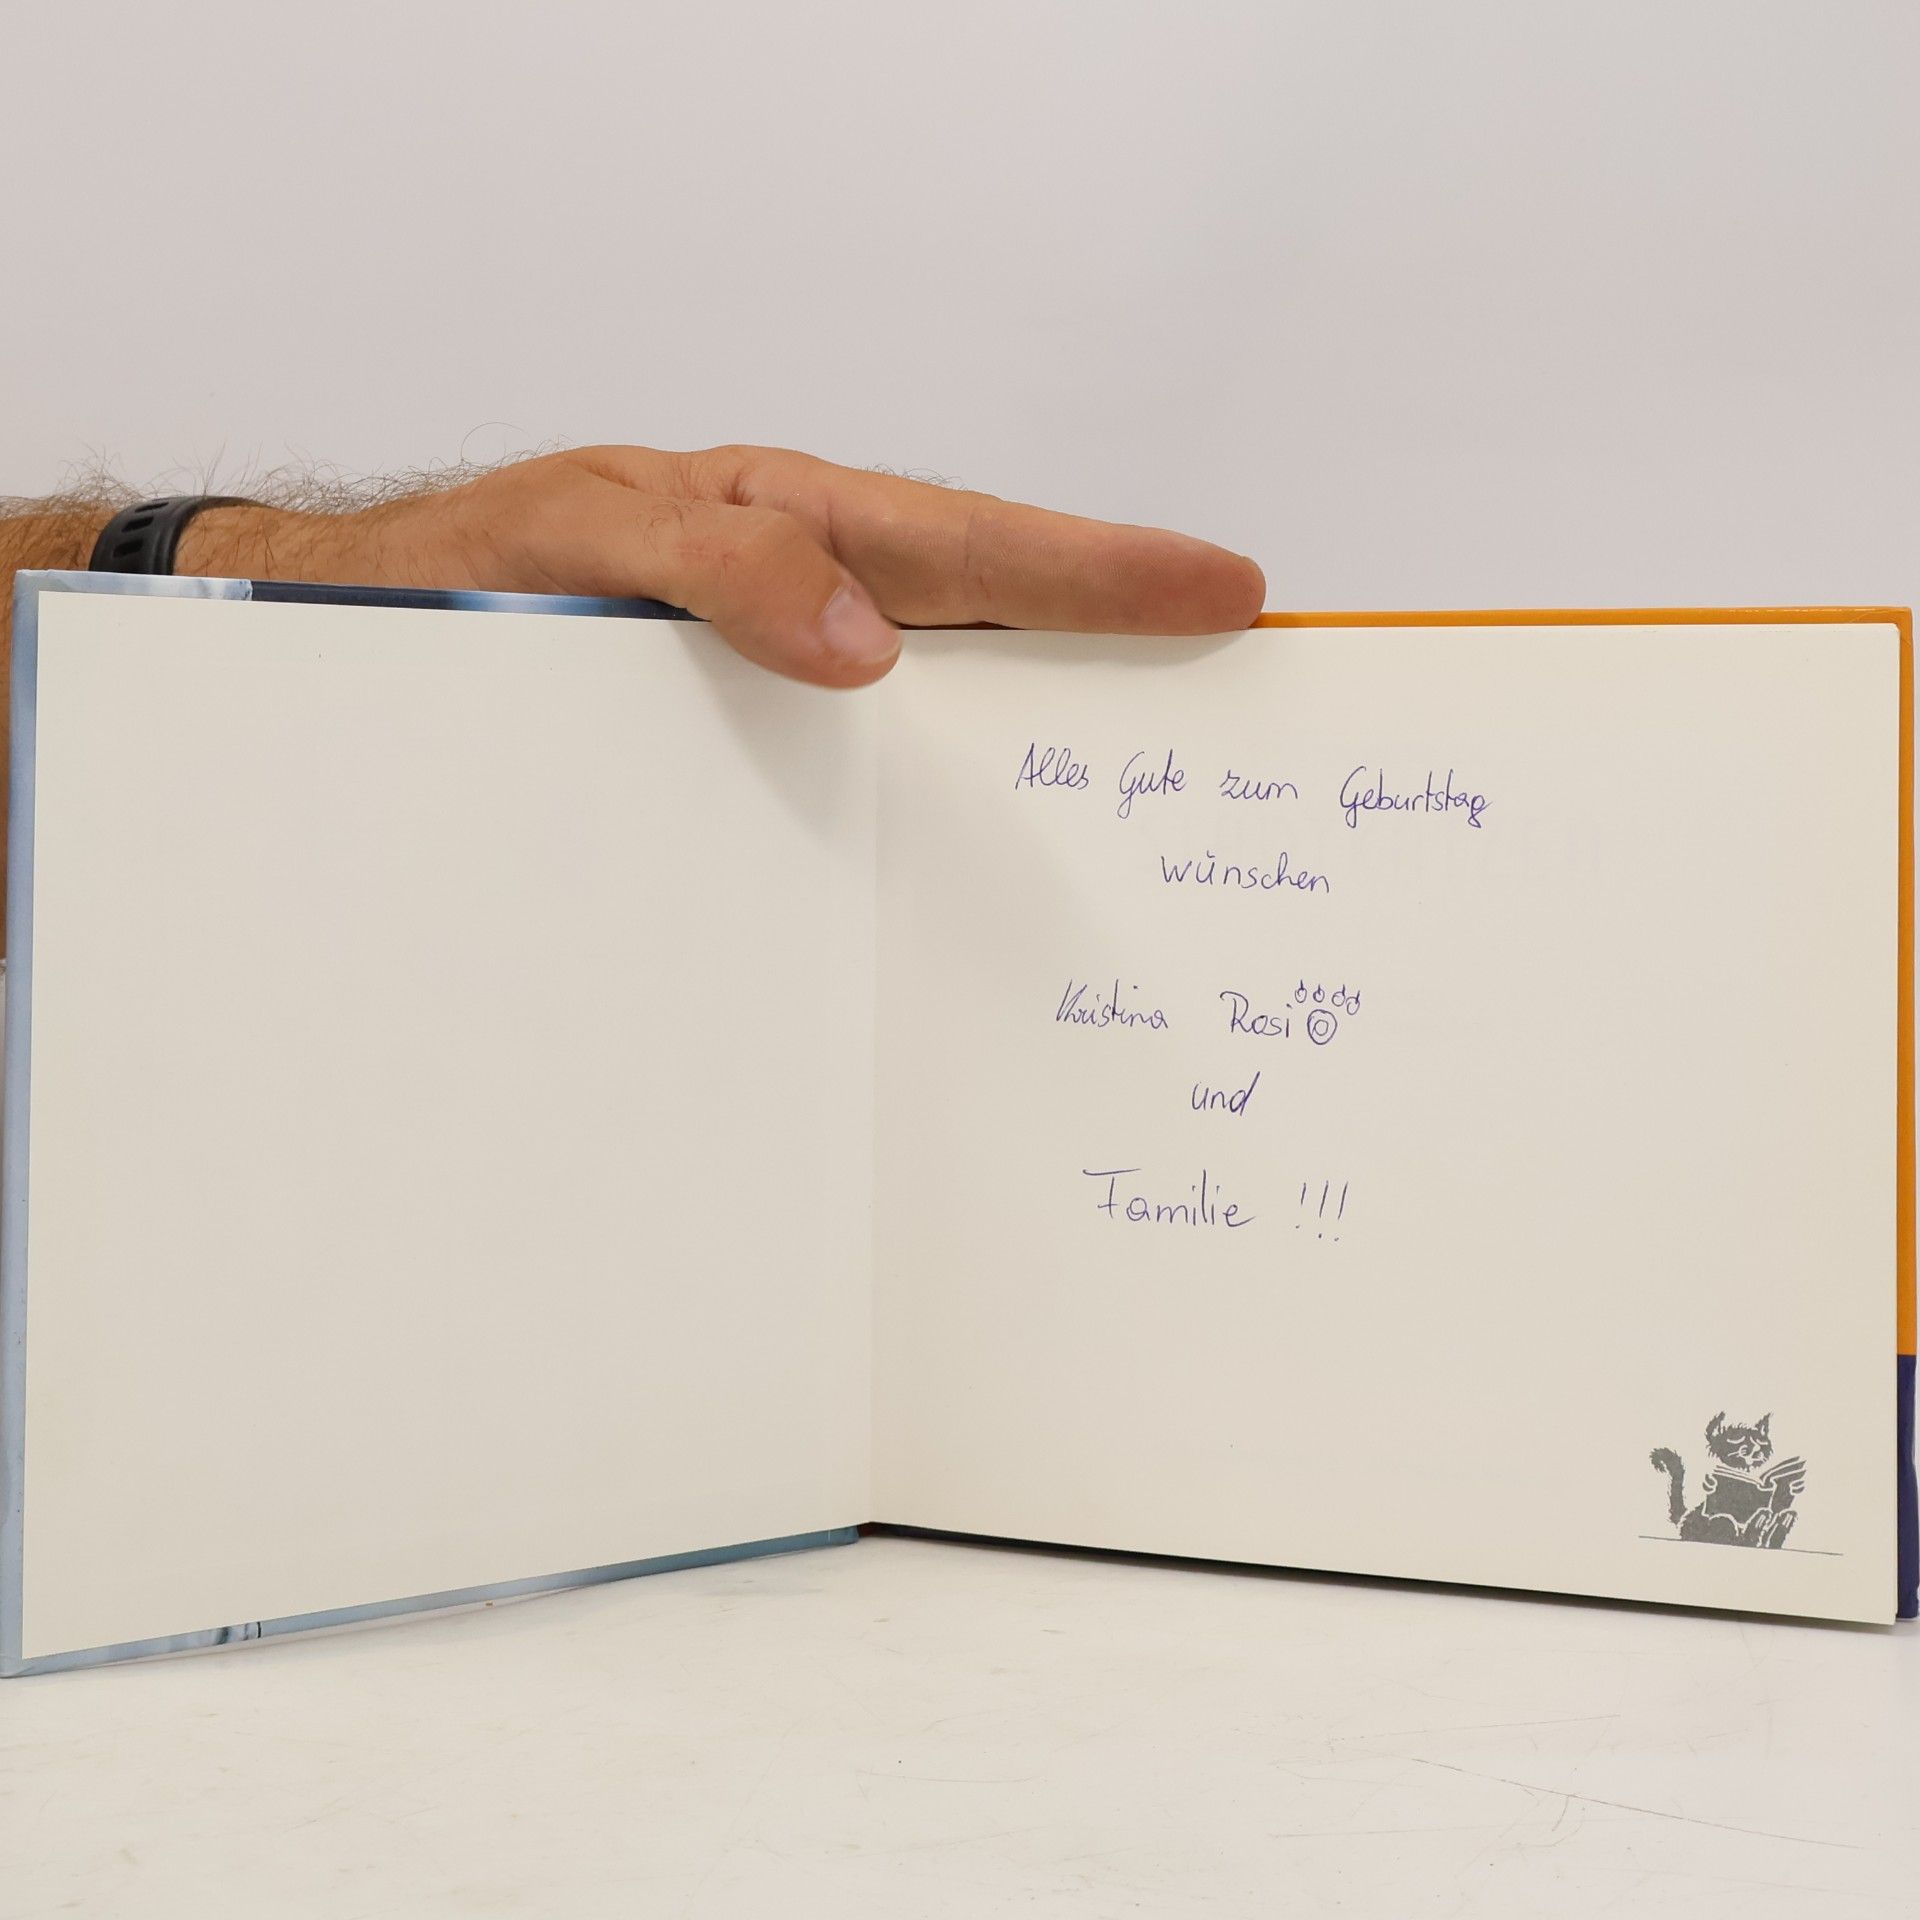 Alles Gute zum Geburtstag
wünschen
Kristina Rosi
und
Familie !!!